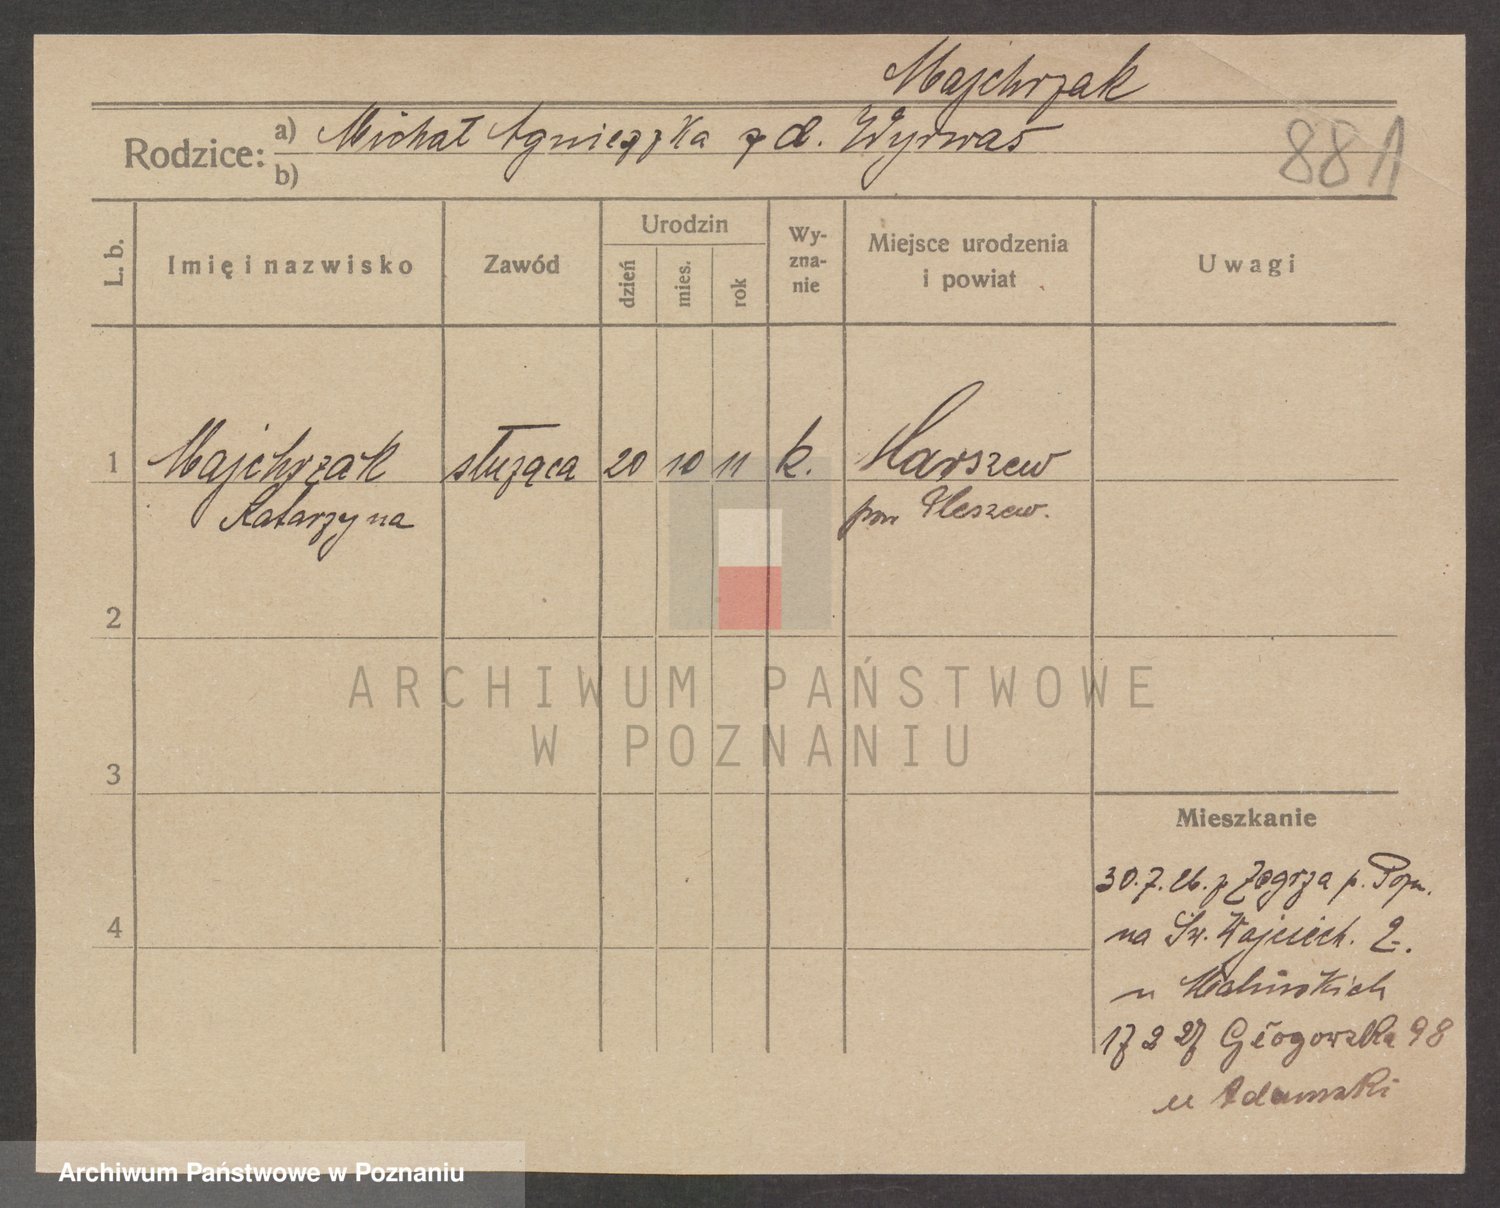 Majchrzak
Rodzice: a) Michał Agnieszka z d. Wyrwas
b)
881
L. b.
Imię i nazwisko
Zawód
Urodzin
dzień
mies.
rok
Wy-
zna-
nie
Miejsce urodzenia
i powiat
Uwagi
1 Majchrzak służąca 20 10 11 k. Karszew
Katarzyna pow Pleszew.
2
ARCHIWUM PAŃSTWOWE
W POZNANIU
3
Mieszkanie
30.7.26. z Zegrza p. Pozn.
4
na Św. Wojciech. 2.
u
17 2 27 Głogowska 98
u Adamski
Archiwum Państwowe w Poznaniu